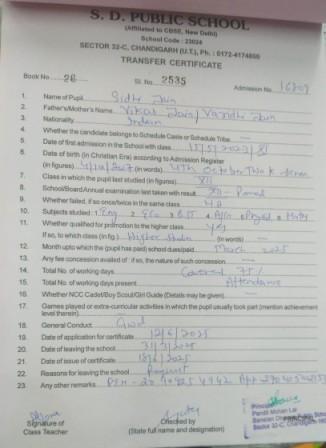 S. D. PUBLIC SCHOOL
(Affiliated to CBSE, New Delhi)
School Code : 23024
SECTOR 32-C, CHANDIGARH (U.T.), Ph. : 0172-4174650
TRANSFER CERTIFICATE
Book No. 26 Sl. No. 2535 Admission No.
1. Name of Pupil Jain
2. Father's/Mother's Name Vikas Jain/ Jain
3. Nationality Indian
4. Whether the candidate belongs to Schedule Caste or Schedule Tribe —
5. Date of first admission in the School with class
6. Date of birth (in Christian Era) according to Admission Register
(in figures) (in words) 4th October
7. Class in which the pupil last studied (in figures) XII
8. School/Board/Annual examination last taken with result XII - Passed
9. Whether failed, if so once/twice in the same class
10. Subjects studied : 1. Eng 2. Eco 3. B.St 4. 5. 6.
11. Whether qualified for promotion to the higher class Yes
If so, to which class (in fig.) Higher (in words) —
12. Month upto which the (pupil has paid) school dues/paid March 2025
13. Any fee concession availed of : if so, the nature of such concession —
14. Total No. of working days 75%
15. Total No. of working days present Attendance
16. Whether NCC Cadet/Boy Scout/Girl Guide (Details may be given) —
17. Games played or extra-curricular activities in which the pupil usually took part (mention achievement
level therein) —
18. General Conduct Good
19. Date of application for certificate 12/6/2025
20. Date of leaving the school 31/3/2025
21. Date of issue of certificate 18/6/2025
22. Reasons for leaving the school Request
23. Any other remarks
Signature of
Class Teacher
Checked by
(State full name and designation)
Principal
Pandit Mohan Lal
Sector 32-C, Chandigarh